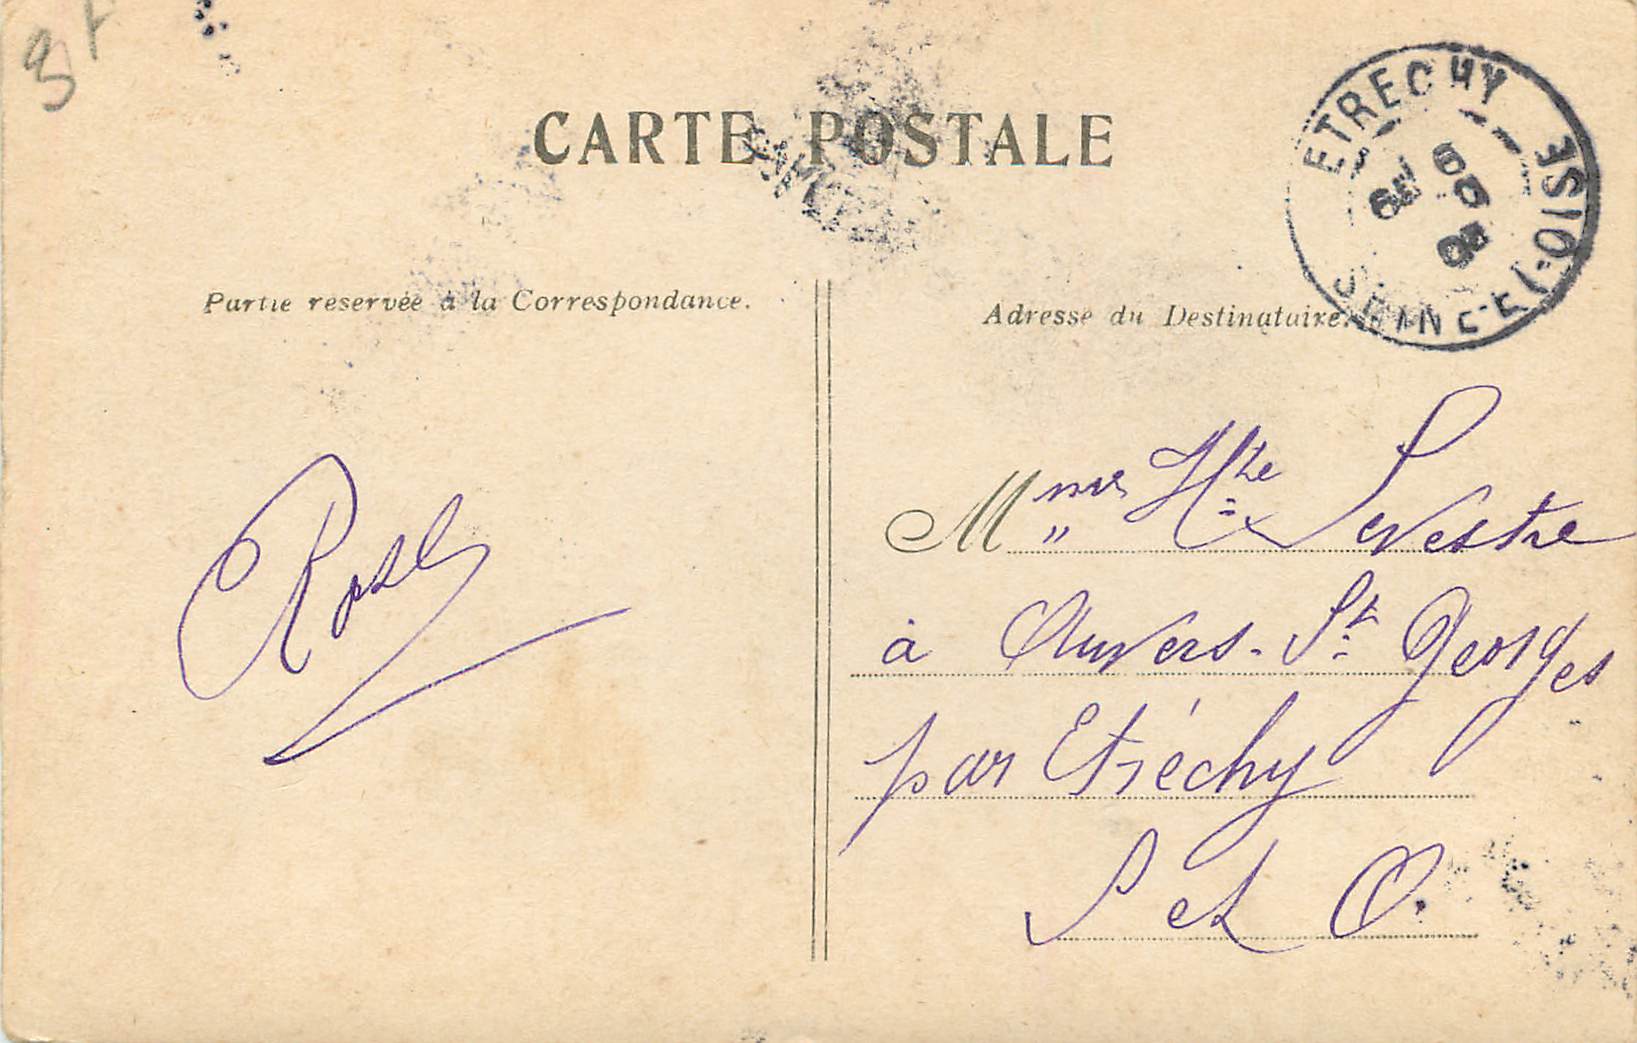 CARTE POSTALE
ETRECHY
SEINE-ET-OISE
6
05
Partie reservée à la Correspondance.
Adresse du Destinataire.
Mme Hte Sevestre
à Auvers-St Georges
par Etréchy
S et O.